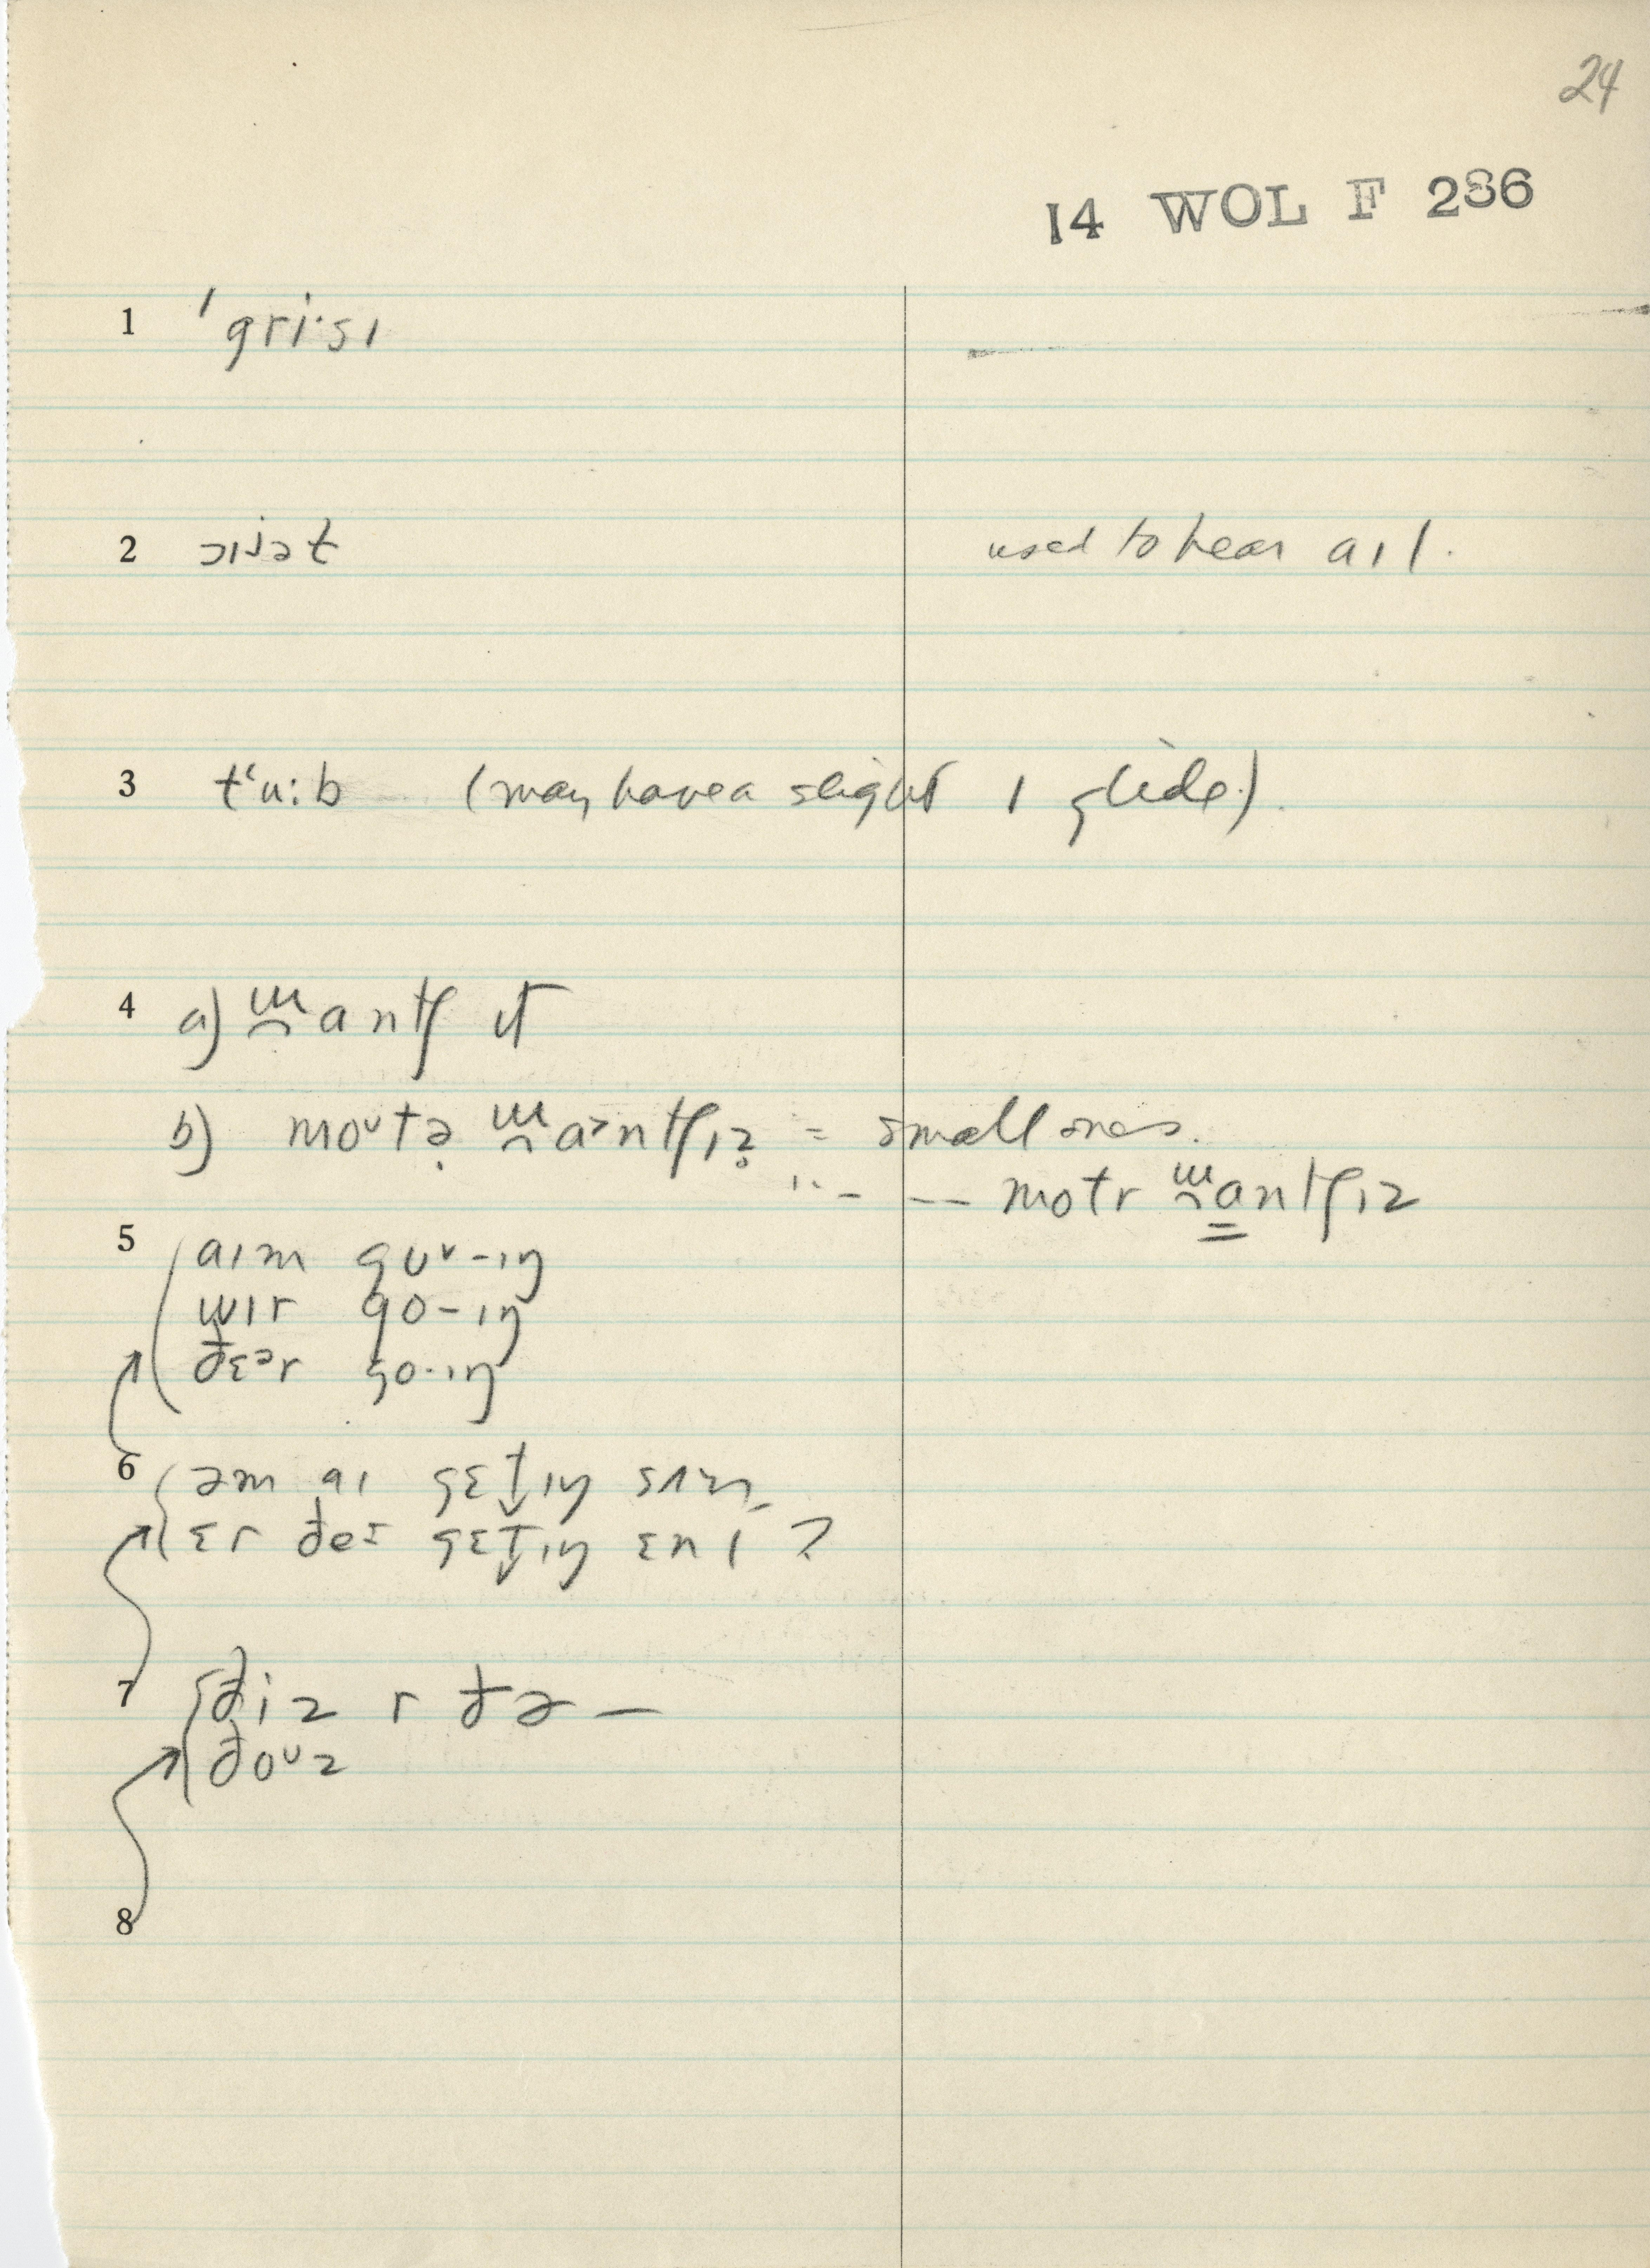 24
14 WOL F 286
1 ˈgri·sɪ
2 ɔɪlət used to hear aɪl.
3 tʻu:b (may have a slight ɪ glide).
4 a) ʍantʃ ɪt
b) moᵘtə ʍaᵊntʃɪz̥ = small ones.
" - -- motr ʍantʃɪz
5 aɪm gʊᵛ-ɪŋ
wɪr go-ɪŋ
ðɛᵊr go·ɪŋ
6 əm aɪ gɛt̬ɪŋ sʌm
ɛr ðeɪ gɛt̬ɪŋ ɛnɪ ?
7 ðiz r ðə —
ðoᵘz
8